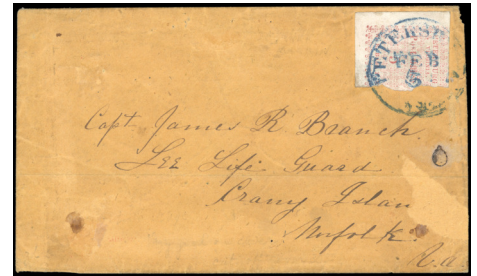 PETERSB
FEB
Capt James R Branch
Lee Life Guard
Crany Islan
Norfolk
Va